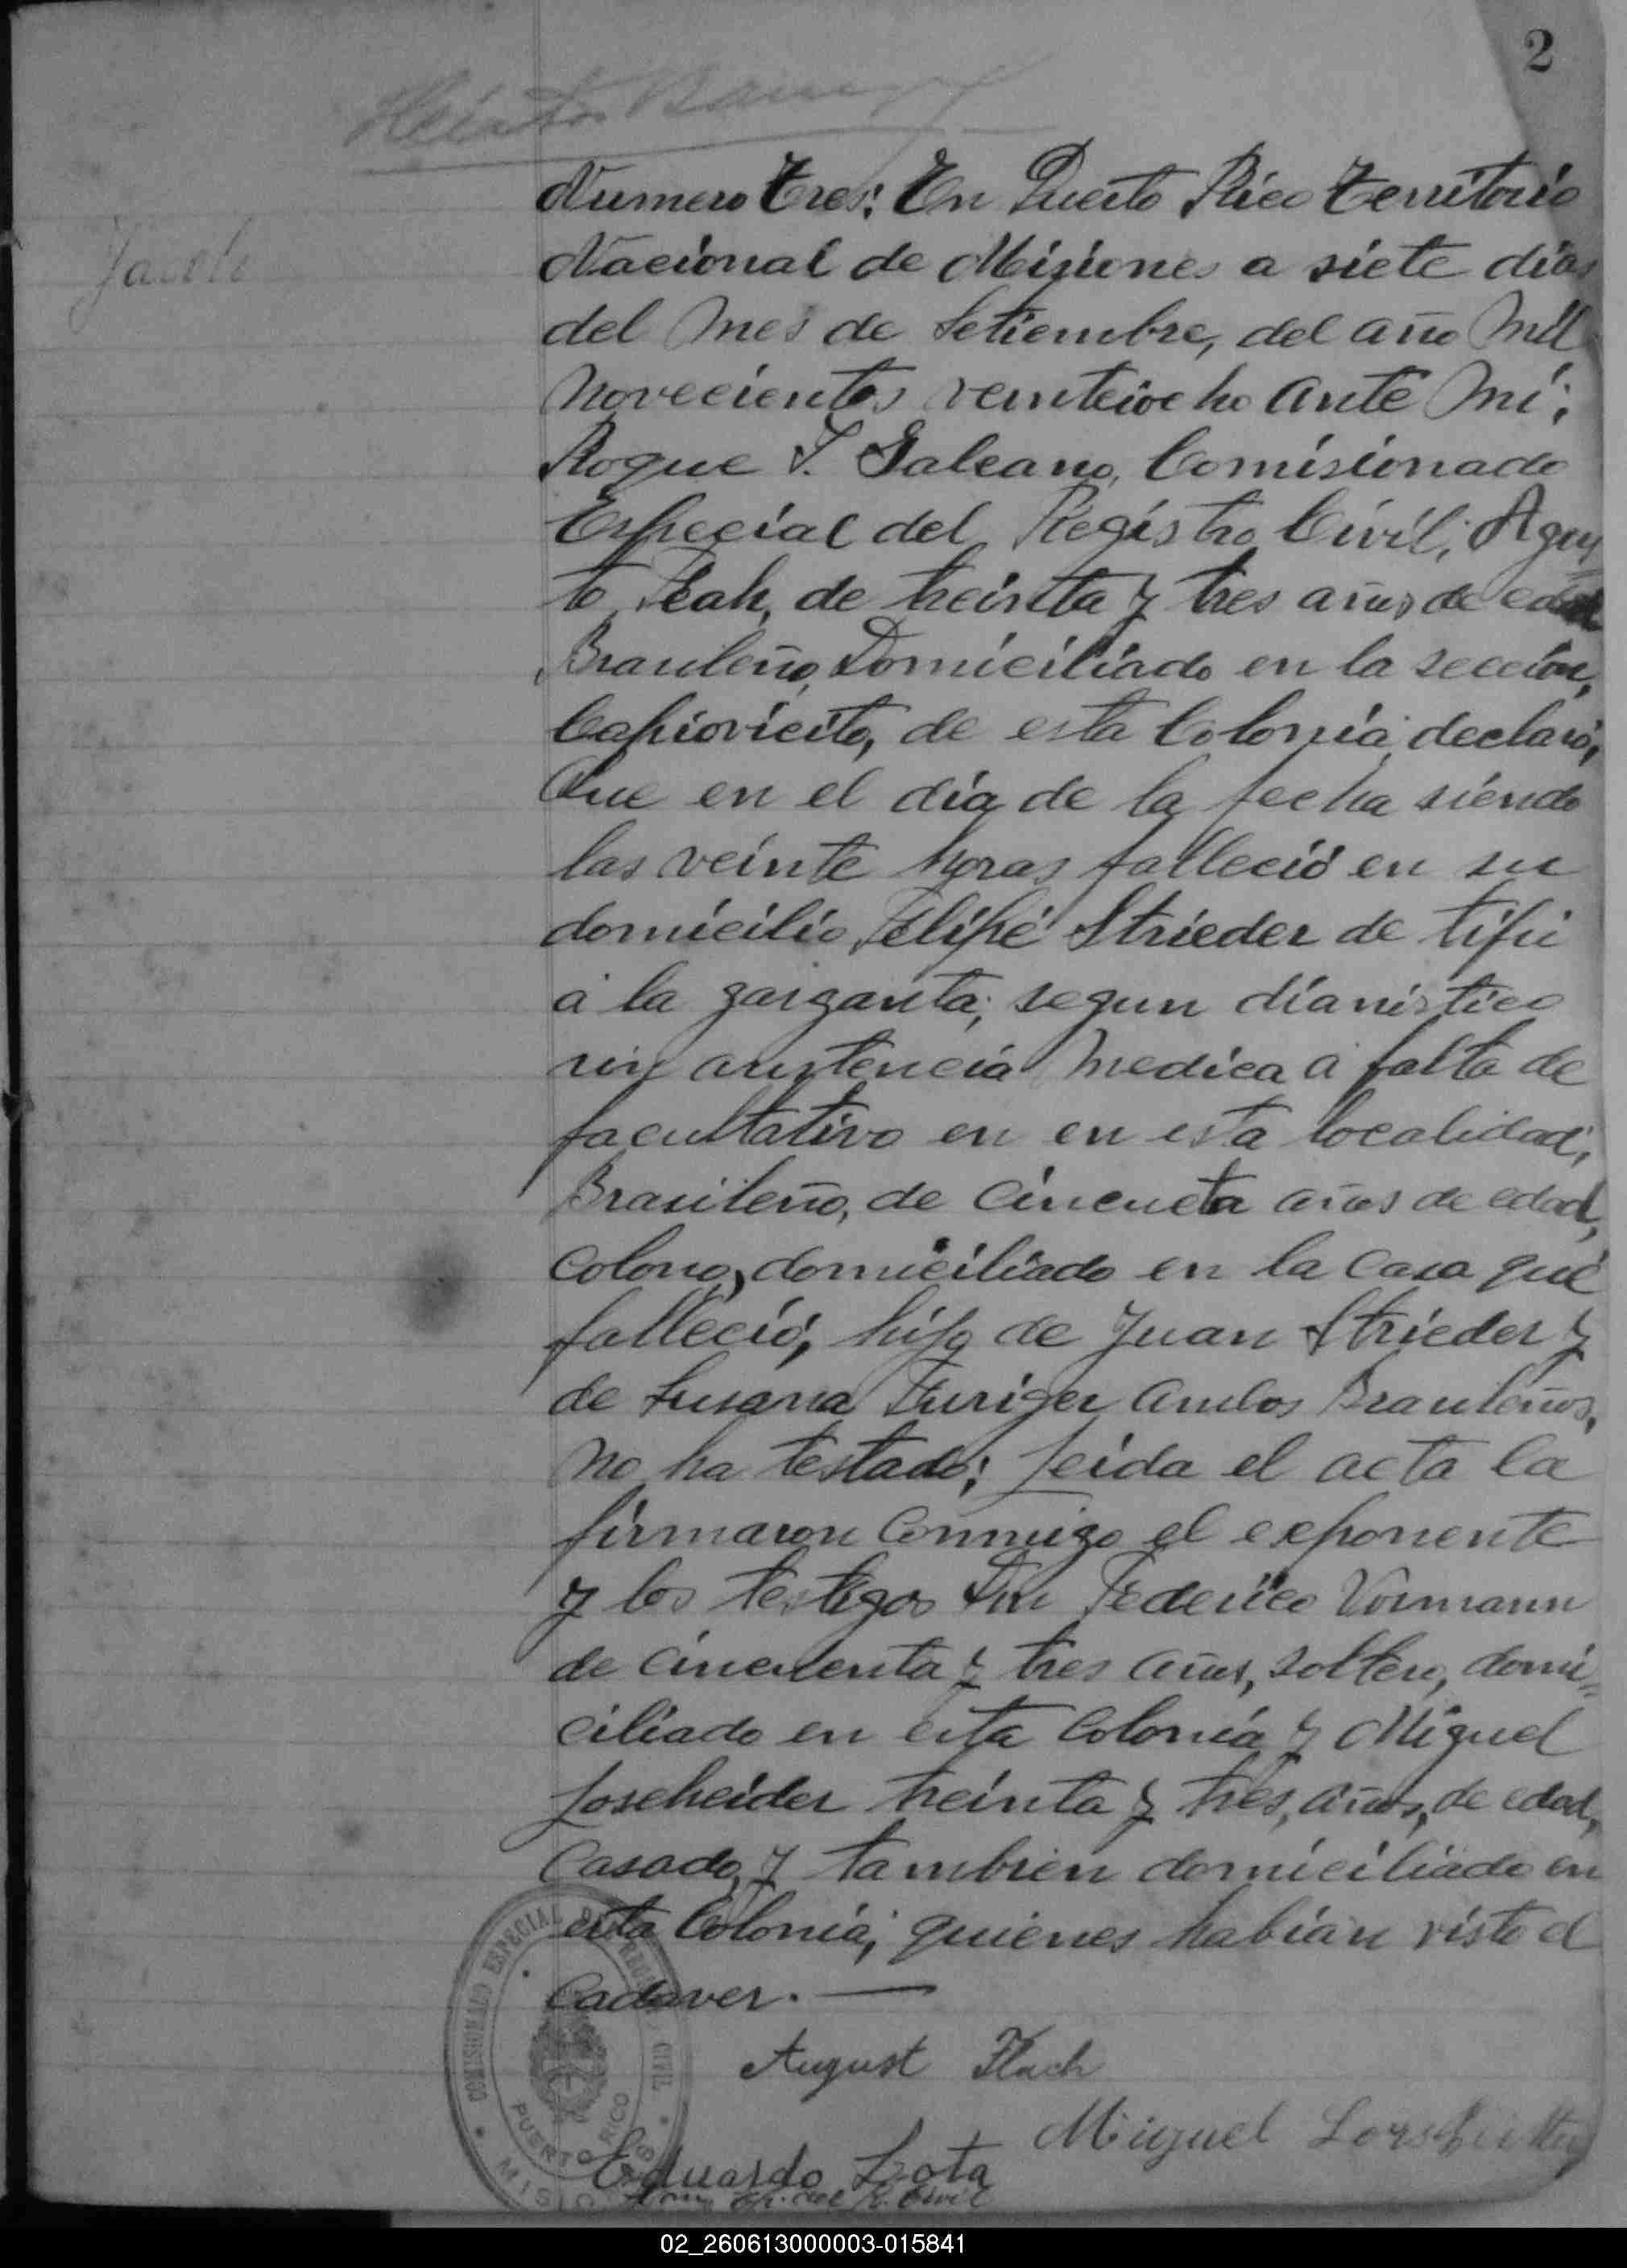 2
Numero tres: En Puerto Rico territorio
Nacional de Misiones a siete dias
del mes de Setiembre, del año mil
novecientos veinteiocho ante mi;
Roque T. Galeano, Comisionado
Especial del Registro Civil; Agus
to Flah, de treintta y tres años de edad
Brasileño, Domiciliado en la sección,
Capiovicito, de esta Colonia declaró,
Que en el día de la fecha siendo
las veinte horas falleció en su
domicilio, Felipe Strieder de tifu
a la garganta; segun dianistico
sin asistencia medica a falta de
facultativo en en esta localidad,
Brasileño, de cincueta años de edad,
colono, domiciliado en la casa que
falleció, hijo de Juan Strieder y
de Susana Turiger ambos Brasileños,
no ha testado; leida el acta la
firmaron conmigo el exponente
y los testigos Don Federico Vormann
de cincuenta y tres años, soltero, domi=
ciliado en esta Colonia y Miguel
Joscheider treinta y tres, años, de edad,
Casado, y tambien domiciliado en
esta Colonia; quienes habian visto el
Cadaver. —
August Flach
Miguel
Eduardo Lota
COMISIONADO ESPECIAL DEL REGISTRO CIVIL
PUERTO RICO
MISIONES
02_260613000003-015841